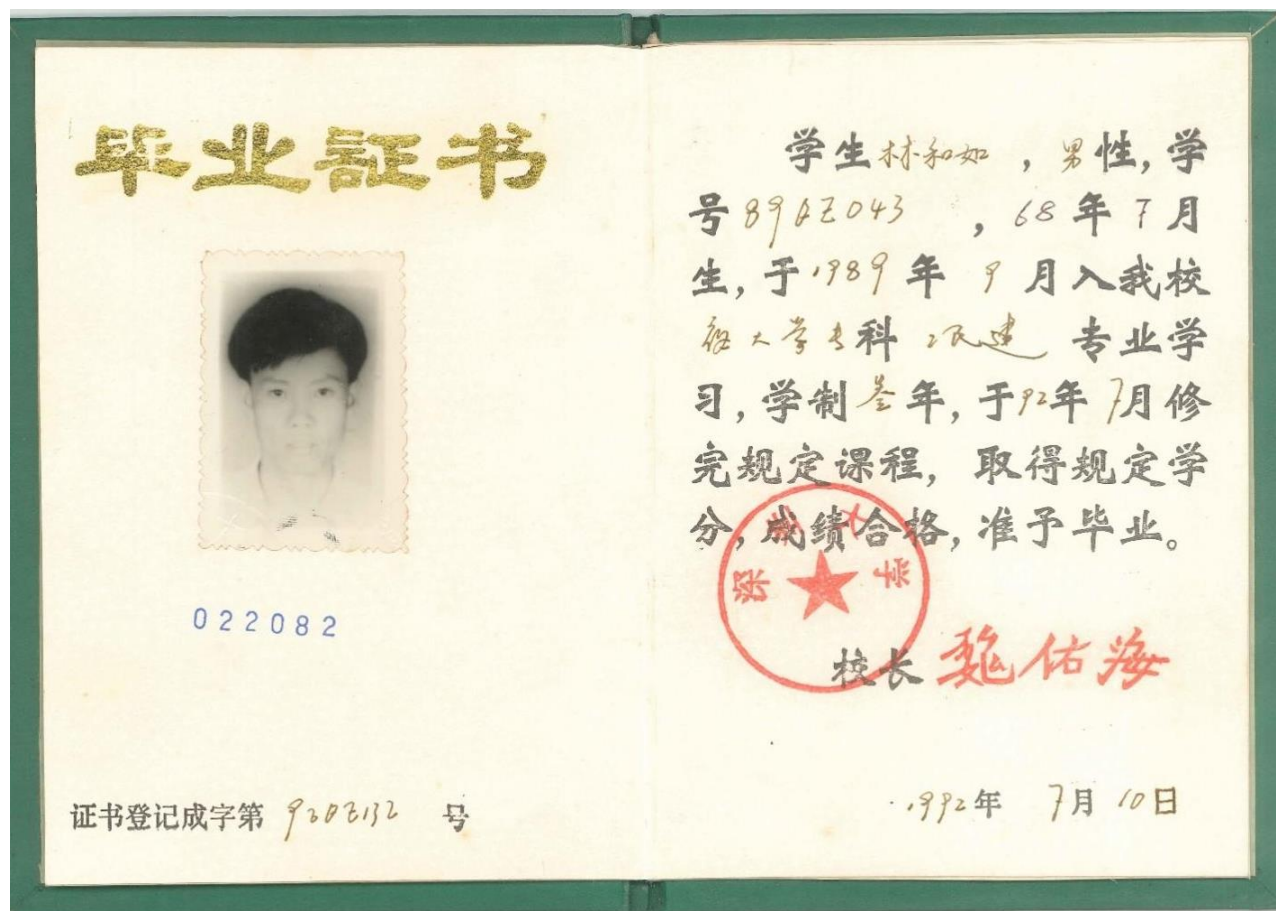 毕业证书
022082
证书登记成字第 号
学生林和如，男性，学
号 043，68年7月
生，于1989年9月入我校
大学专科 建 专业学
习，学制叁年，于92年7月修
完规定课程，取得规定学
分，成绩合格，准予毕业。
深圳大学
校长 魏佑海
1992年7月10日